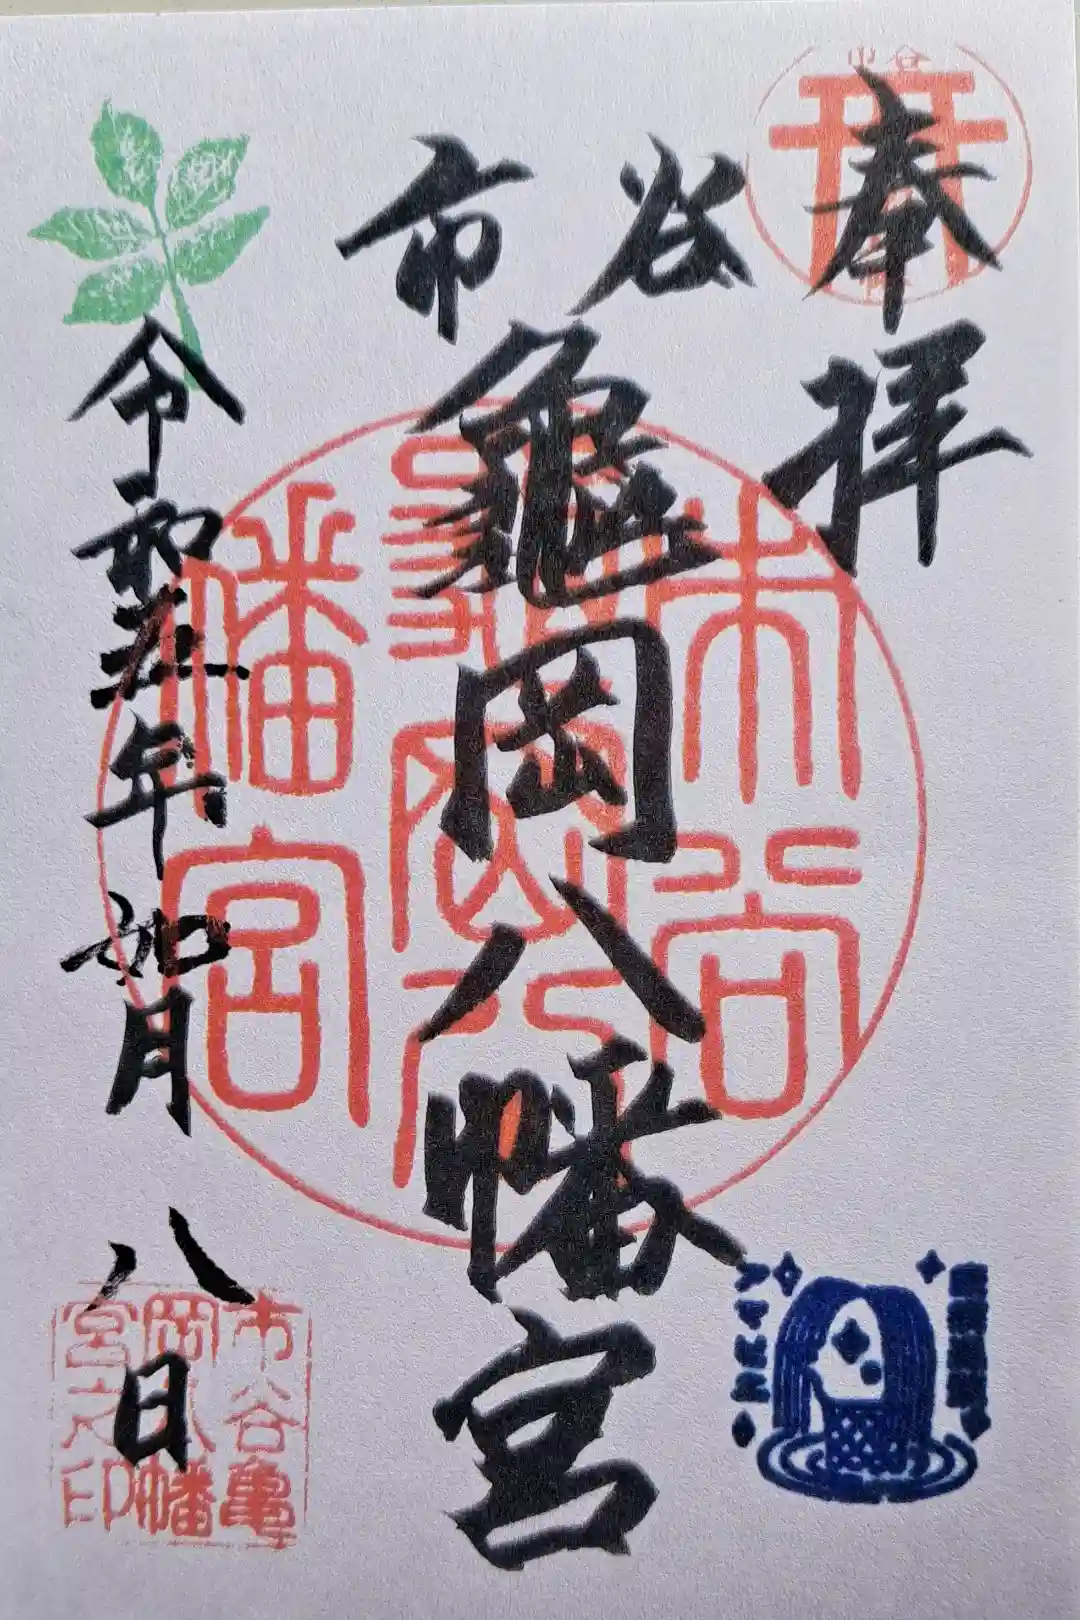 奉拝
市谷
龜岡八幡宮
令和五年如月八日
市谷
市谷
龜岡八
幡宮
市谷亀
岡八幡
宮之印